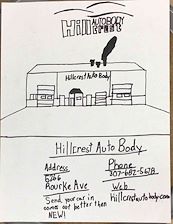 Hillcrest
AUTO BODY
Hillcrest Auto Body
Hillcrest Auto Body
Address
Rourke Ave
Phone
307-682-5678
Web
hillcrestautobody.com
Send your car in
comes out better then
NEW!